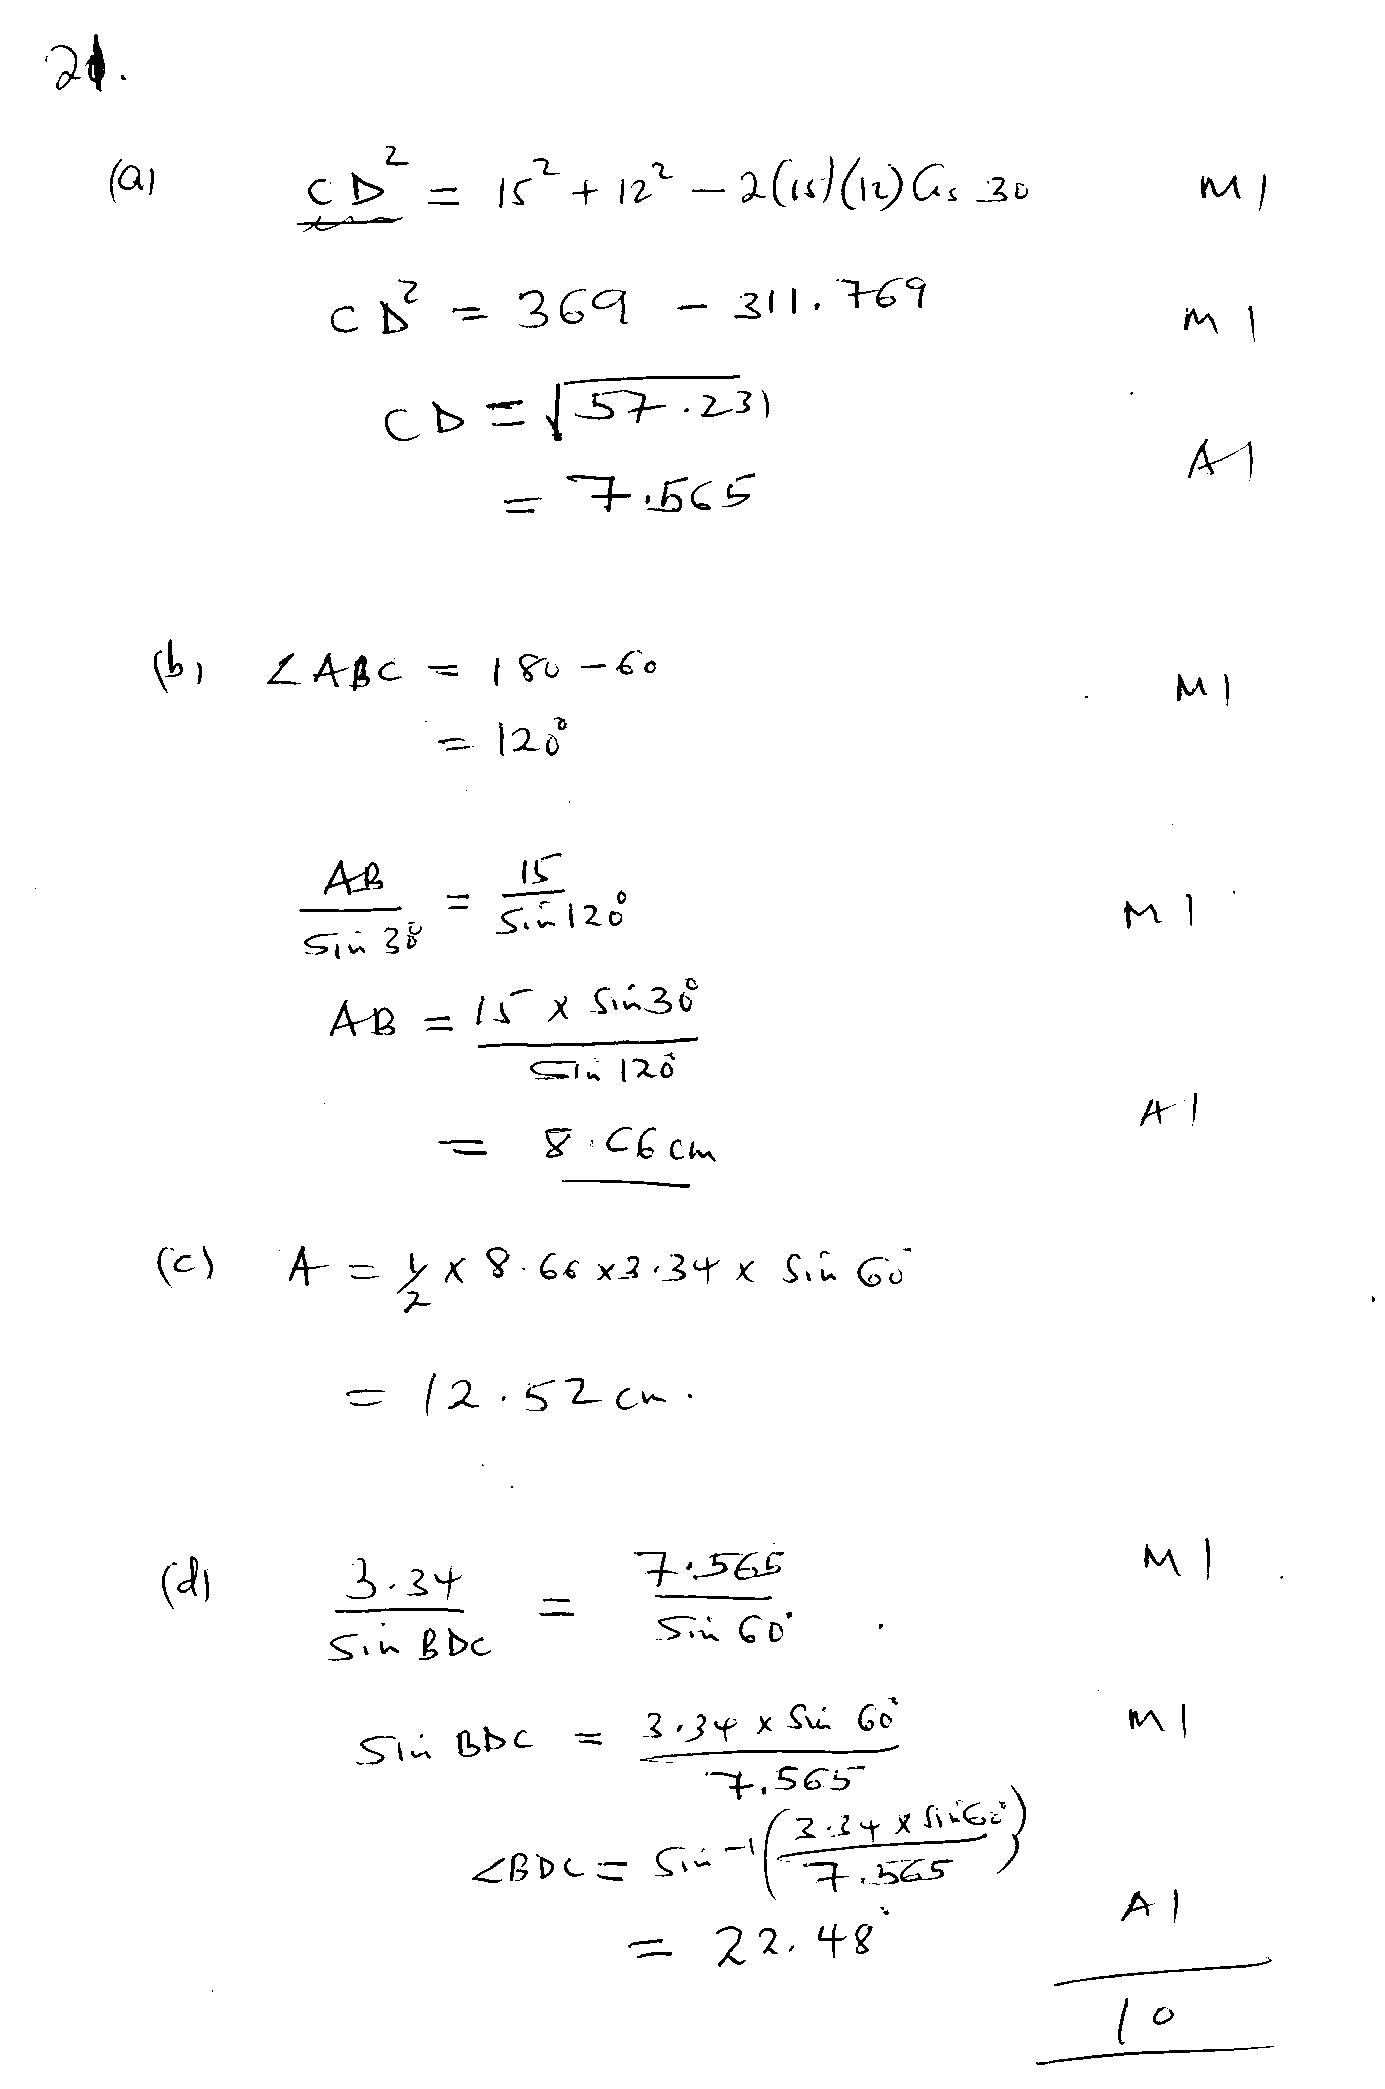 21.
(a) CD² = 15² + 12² – 2(15)(12) Cos 30 M1
CD² = 369 – 311.769 M1
CD = √57.231
= 7.565 A1
(b) ∠ABC = 180 – 60 M1
= 120°
AB / Sin 30° = 15 / Sin 120° M1
AB = 15 × Sin 30° / Sin 120°
= 8.66 cm A1
(c) A = 1/2 × 8.66 × 3.34 × Sin 60°
= 12.52 cm.
(d) 3.34 / Sin BDC = 7.565 / Sin 60° M1
Sin BDC = 3.34 × Sin 60° / 7.565 M1
∠BDC = Sin⁻¹(3.34 × Sin 60° / 7.565)
= 22.48° A1
10